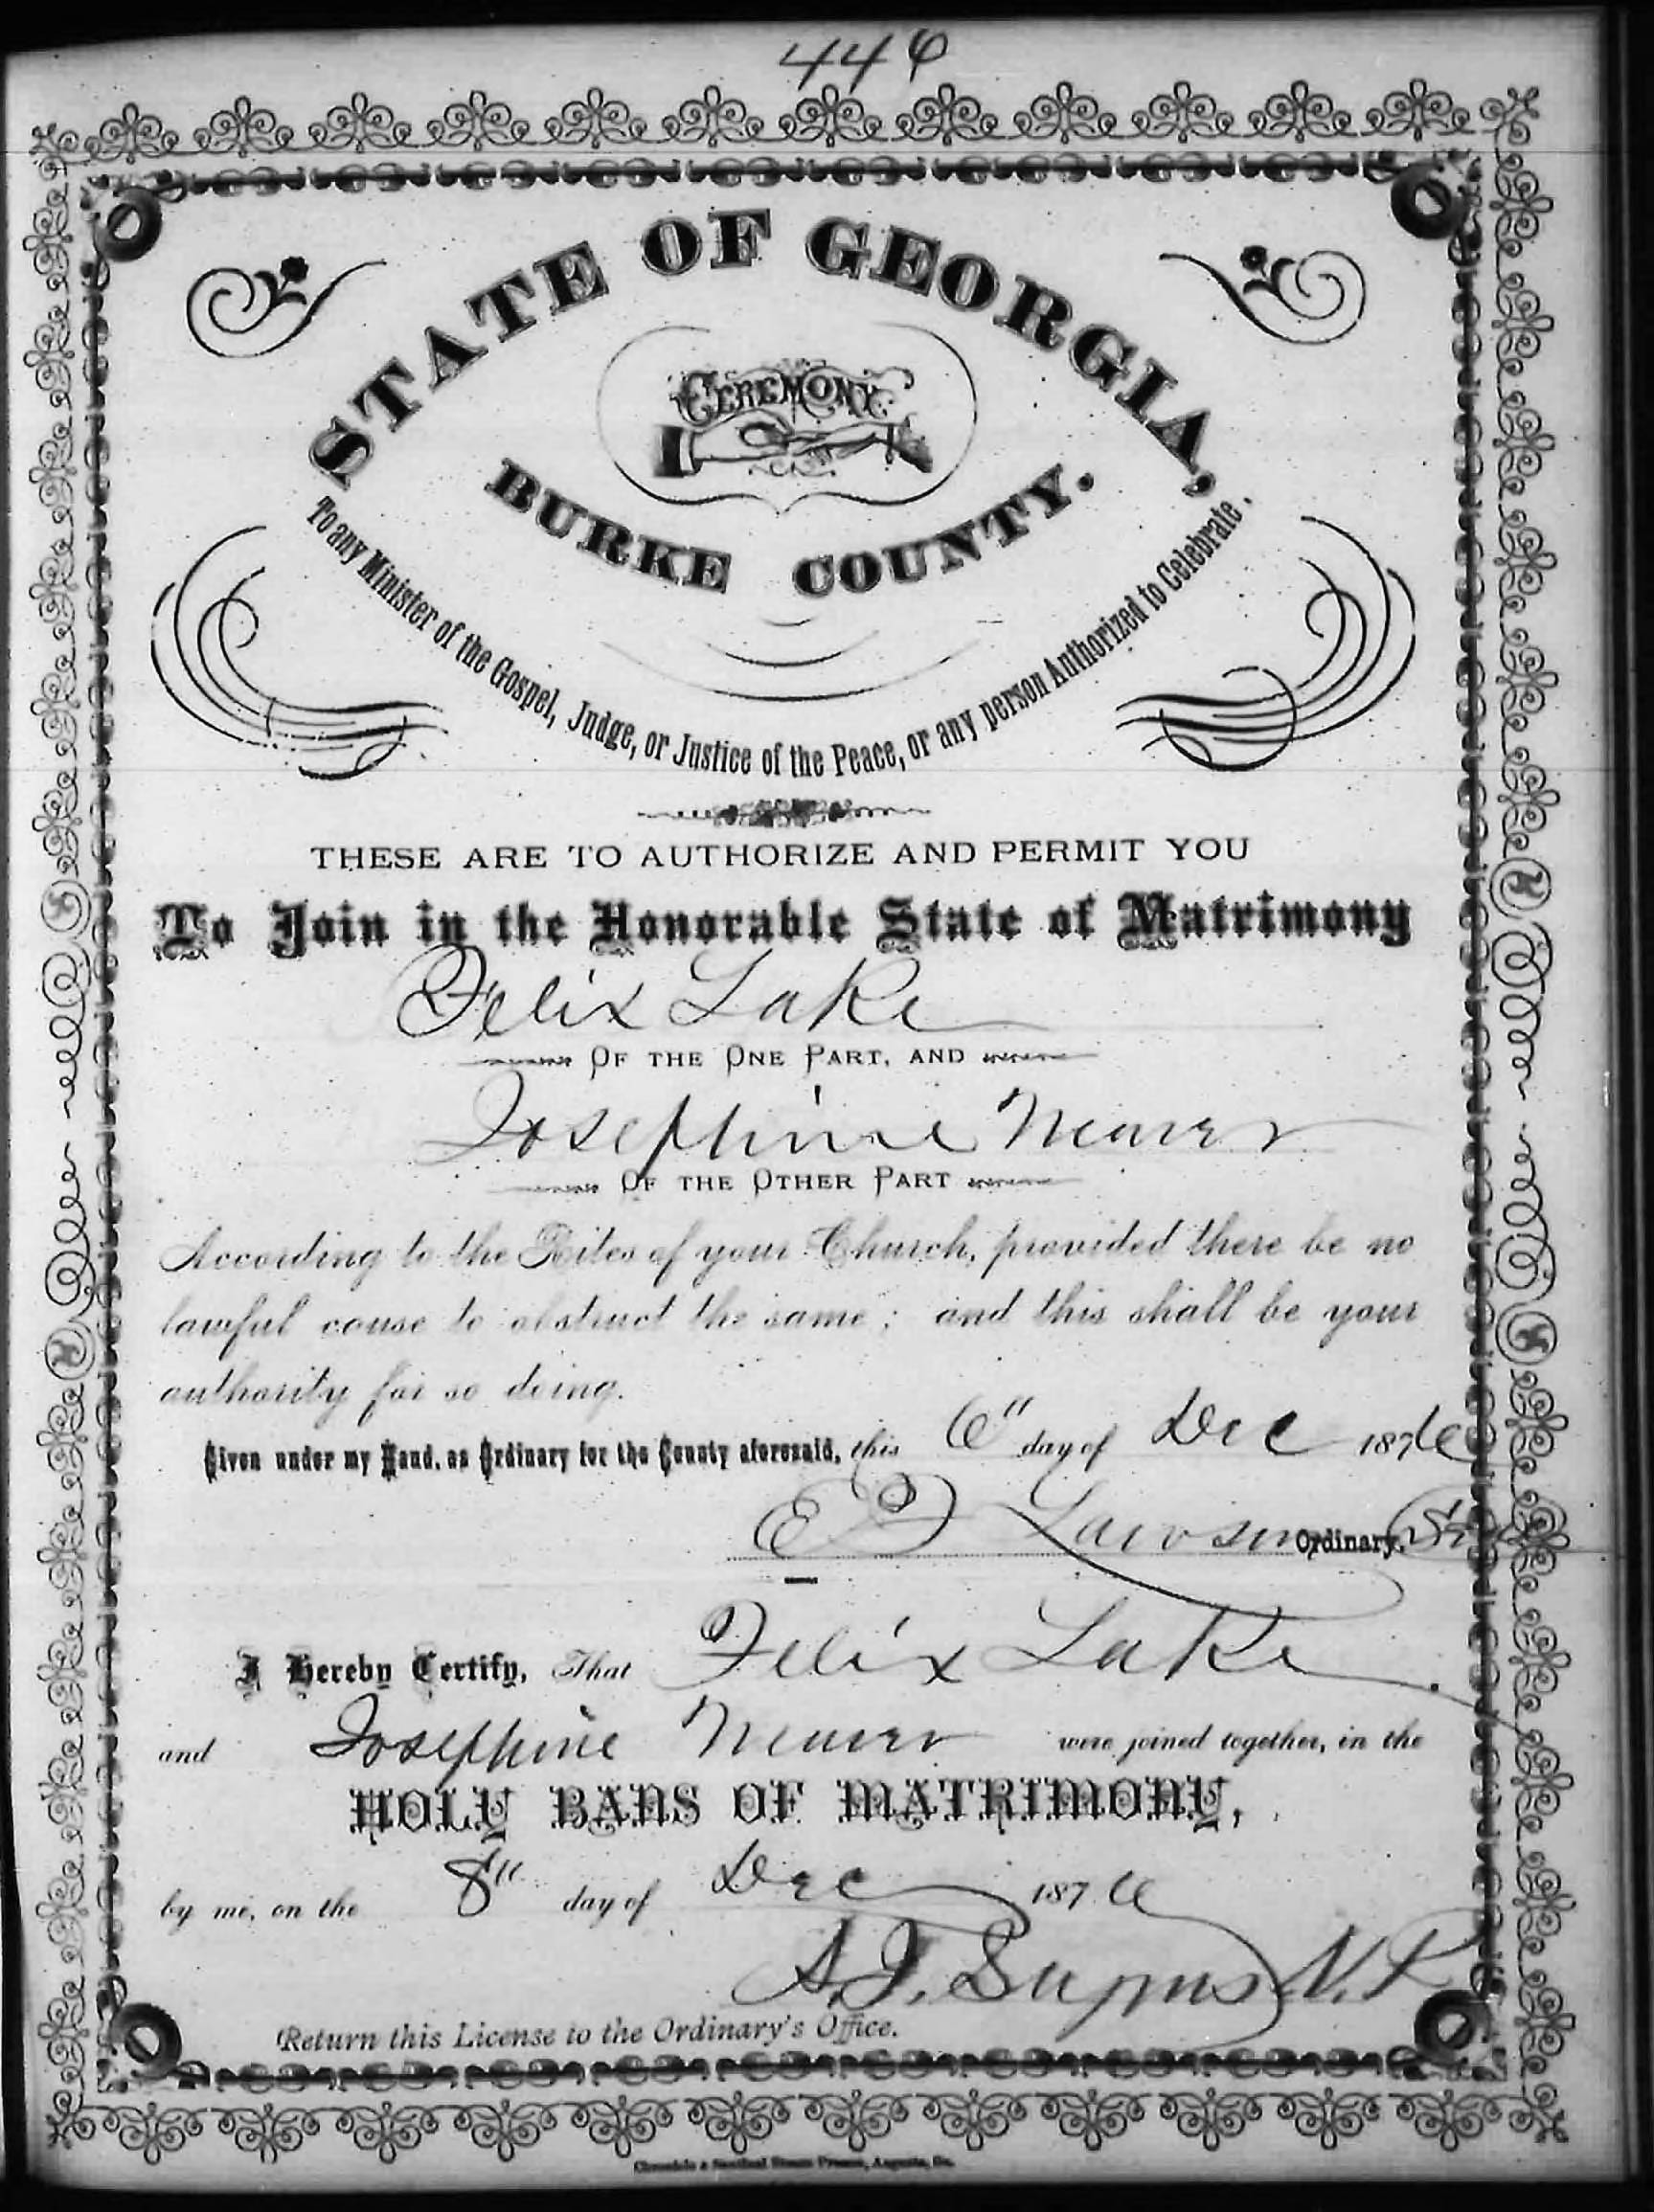 446
STATE OF GEORGIA,
CEREMONY
BURKE COUNTY.
To any Minister of the Gospel, Judge, or Justice of the Peace, or any person Authorized to Celebrate.
THESE ARE TO AUTHORIZE AND PERMIT YOU
To Join in the Honorable State of Matrimony
Felix Lake
OF THE ONE PART, AND
Josephine
OF THE OTHER PART
According to the Rites of your Church, provided there be no
lawful cause to obstruct the same; and this shall be your
authority for so doing.
Given under my Hand, as Ordinary for the County aforesaid, this 6" day of Dec 1876
E F Lawson Ordinary,
I Hereby Certify, That Felix Lake
and Josephine were joined together, in the
HOLY BANS OF MATRIMONY,
by me, on the 8th day of Dec 1876
N.P
Return this License to the Ordinary's Office.
Chronicle & Sentinel Steam Presses, Augusta, Ga.